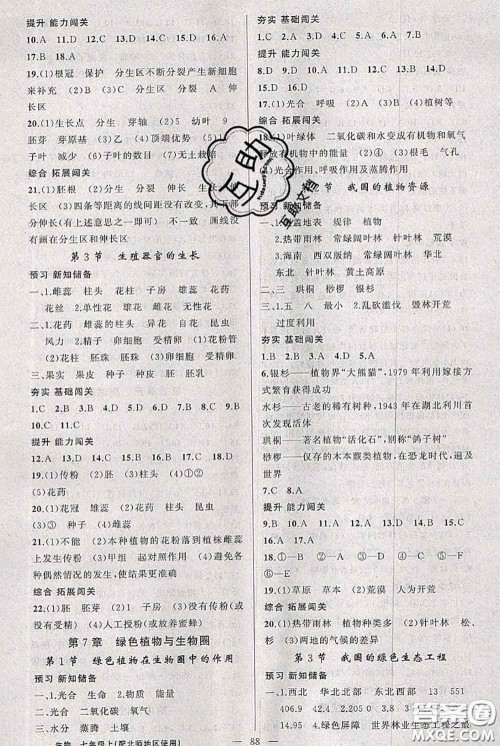 提升 能力闯关
10.A 11.C 12.A 13.D 14.C 15.D 16.B 17.C
18.B
19.(1)根冠 保护 分生区不断分裂产生新细胞
来补充 (2)B 分生 (3)C 伸长 (4)A 伸
长区
20.(1)生长点 分生 (2)5 幼叶 4
芽原基 (3)乙 (4)顶端优势
(6)子叶的数目 (7)无土栽培
综合 拓展闯关
21.(1)胚根 (2)分生区 伸长区
伸长区 (3)四条等距离的线间距没有改变
(和有上述意思之一即可) 不一致 画线没有
画在伸长区
第3节 生殖器官的生长
预习 新知储备
一、1.雄蕊 花药 花粉 雌蕊 子房 胚珠
花丝 2.单性花 雄花 雌花 玉米
二、1.花药 雌蕊的柱头 异花 自花 昆虫
风力 2.精子 卵细胞 受精卵 3.受精
花粉管 胚珠 胚珠 卵细胞 受精卵
三、果实 果皮 种皮 胚 胚乳
夯实 基础闯关
1.C 2.A 3.C 4.B 5.C 6.B 7.B 8.C 9.D
10.C 11.C
提升 能力闯关
12.A 13.D 14.B 15.C 16.B 17.D 18.A
19.(1)传粉 (2)① 柱头 (3)④ (4)①②
(5)花药
20.(1)花冠 雄蕊 (2)萼片 (3)花药 昆虫
③ 子房 种子 (4)雌蕊
21.(1)不能 (2)本种植物的花粉落到植株雌蕊
上发生传粉 (3)甲组 起对照作用 (4)避免
偶然情况的发生,使结果更准确
综合 拓展闯关
22.(1)胚 胚芽 (2)1 子房 (3)没有传粉
没有受精 (4)人工授粉(或放养蜜蜂)
第7章 绿色植物与生物圈
第1节 绿色植物在生物圈中的作用
预习 新知储备
一、1.光合 二氧化碳 水 有机物
光 二氧化碳 水
二、水分 蒸腾 土壤
生物 七年级上(配北师地区使用)
夯实 基础闯关
1.C 2.A 3.A 4.B 5.C 6.B 7.D
提升 能力闯关
8.D 9.D 10.B 11.C 12.A 13.C 14.D
15.D 16.D
17.(1)光合 呼吸 (2)B (3)C (4)植树等
综合 拓展闯关
18.(1)叶绿体 二氧化碳和水变成有机物和氧气
释放有机物中的能量 (3)根毛 气孔
光合作用、呼吸作用及蒸腾作用
节 我国的植物资源
预习 新知储备
一、1.覆盖地表 规律 植物
2.热带雨林 常绿阔叶林 针叶林 草原 荒漠
3.海南 西双版纳 常绿阔叶林 华北
东北 针叶林 黄土高原
二、三 珙桐 桫椤 银杉
三、1.五 八 最小 2.乱砍滥伐 毁林开荒
过度利用
夯实 基础闯关
1.B 2.B 3.D 4.B 5.A
6.银杉——植物界“大熊猫”,1979年利用嫁接方
式繁育获得成功
水杉——古老的稀有树木,1943年在湖北利川首
次发现活体
珙桐——著名植物“活化石”,别称“鸽子树”
桫椤——仅存的木本蕨类植物,在恐龙时代,遍及
世界
7.C 8.A
提升 能力闯关
9.B 10.A 11.A 12.D 13.D 14.B 15.C
16.A 17.B
18.①—F ②—B ③—D ④—E ⑤—A
⑥—C
19.(1)草原 (2)草原 荒漠 人为开荒
综合 拓展闯关
20.(1)热带雨林 植物种类多 (2)针叶林 松、
杉 (3)两地的气候或气温不同
第3节 我国的绿色生态工程
预习 新知储备
一、1.西北 华北北部 东北西部
4069
3.(1)绿色屏障 世界林业生态工程之最
88
互助
互助文档
答案圈
MXQE.COM